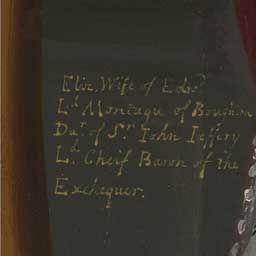 Eliz. Wife of Edwd
Ld Montague of Boughton
Dar. of Sr Iohn Ieffery
Ld Cheif Baron of the
Exchequer.